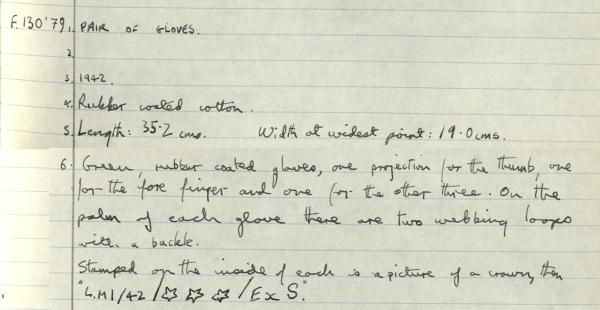 F.130'79. 1. PAIR OF GLOVES.
2.
3. 1942.
4. Rubber coated cotton.
5. Length: 35.2 cms. Width at widest point: 19.0 cms.
6. Green, rubber coated gloves, one projection for the thumb, one
for the fore finger and one for the other three. On the
palm of each glove there are two webbing loops
with a buckle.
Stamped on the inside of each is a picture of a crown, then
"L.M1/42/☆ ☆ ☆/Ex S."